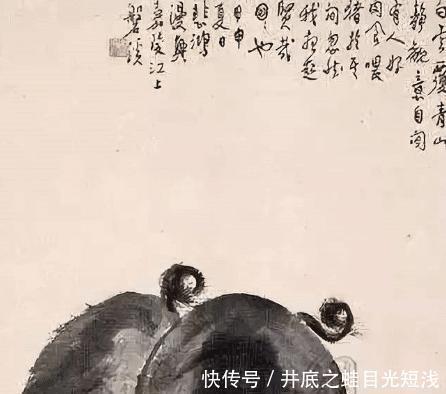 白雲覆青山
静觀意自閒
有人好
肉食喂
猪於其
間忽然
我想起
賢哉
回也
甲申
夏日
悲鴻
漫興
嘉陵江上
磐溪
快传号/井底之蛙目光短浅